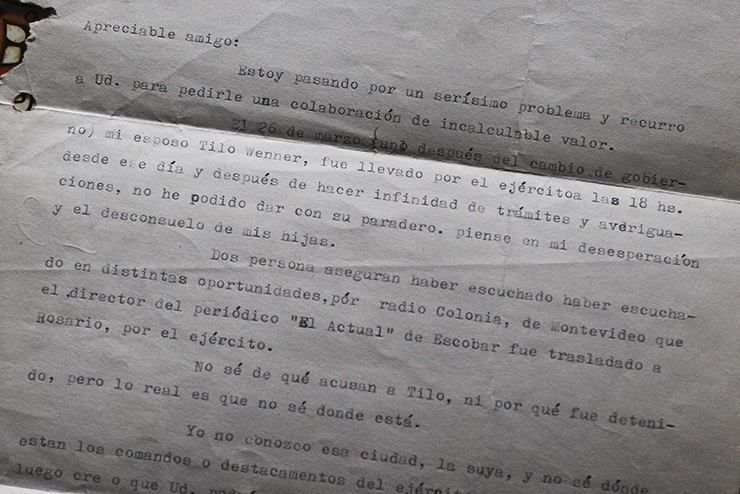 Apreciable amigo:
Estoy pasando por un serísimo problema y recurro
a Ud. para pedirle una colaboración de incalculable valor.
El 26 de marzo (uno después del cambio de gobier-
no) mi esposo Tilo Wenner, fue llevado por el ejércitoa las 18 hs.
desde ese día y después de hacer infinidad de trámites y avdrigua-
ciones, no he podido dar con su paradero. piense en mi desesperación
y el desconsuelo de mis hijas.
Dos persona aseguran haber escuchado haber escucha-
do en distintas oportunidades,pór radio Colonia, de Montevideo que
el ,director del periódico "El Actual" de Escobar fue trasladado a
Rosario, por el ejército.
No sé de qué acusan a Tilo, ni por qué fue deteni-
do, pero lo real es que no sé donde está.
Yo no conozco esa ciudad, la suya, y no sé dónde
estan los comandos o destacamentos del ejérci
luego cre o que Ud.